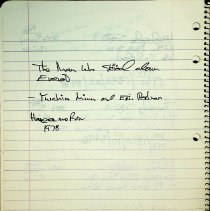 The Man Who Skied down
Everest
- Yuichiro Miura and Eric Perlman
Harper and Row
1978